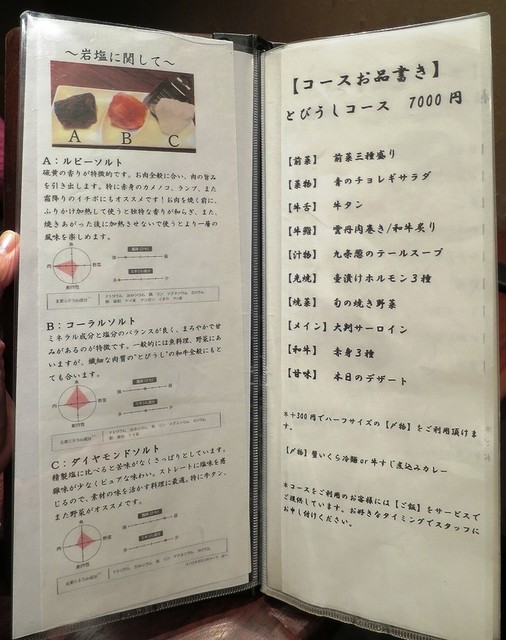 ～岩塩に関して～
A B C
A：ルビーソルト
硫黄の香りが特徴的です。お肉全般に合い、肉の旨み
を引き出します。特に赤身のカメノコ、ランプ、また
霜降りのイチボにもオススメです！お肉を焼く前に、
ふりかけ加熱して使うと独特な香りが和らぎ、また、
焼きあがった後に加熱させないで使うとより一層の
風味を楽しめます。
B：コーラルソルト
ミネラル成分と塩分のバランスが良く、まろやかで甘
みがあるのが特徴です。一般的には魚料理、野菜にあ
いますが、繊細な肉質の"とびうし"の和牛全般にもと
ても合います。
C：ダイヤモンドソルト
精製塩に比べると苦味がなくさっぱりとしています。
雑味が少なくピュアな味わい。ストレートに塩味を感
じるので、素材の味を活かす料理に最適。特に牛タン、
また野菜がオススメです。
【コースお品書き】
とびうしコース 7000円
【前菜】 前菜三種盛り
【菜物】 春のチョレギサラダ
【牛舌】 牛タン
【牛鮨】 雲丹肉巻き/和牛炙り
【汁物】 九条葱のテールスープ
【先焼】 壷漬けホルモン3種
【焼菜】 旬の焼き野菜
【メイン】 大判サーロイン
【和牛】 赤身3種
【甘味】 本日のデザート
＊＋300円でハーフサイズの【〆物】をご利用頂けま
す。
【〆物】蟹いくら冷麺or牛すじ煮込みカレー
＊コースをご利用のお客様には【ご飯】をサービスで
ご提供しています。お好きなタイミングでスタッフに
お申し付けください。